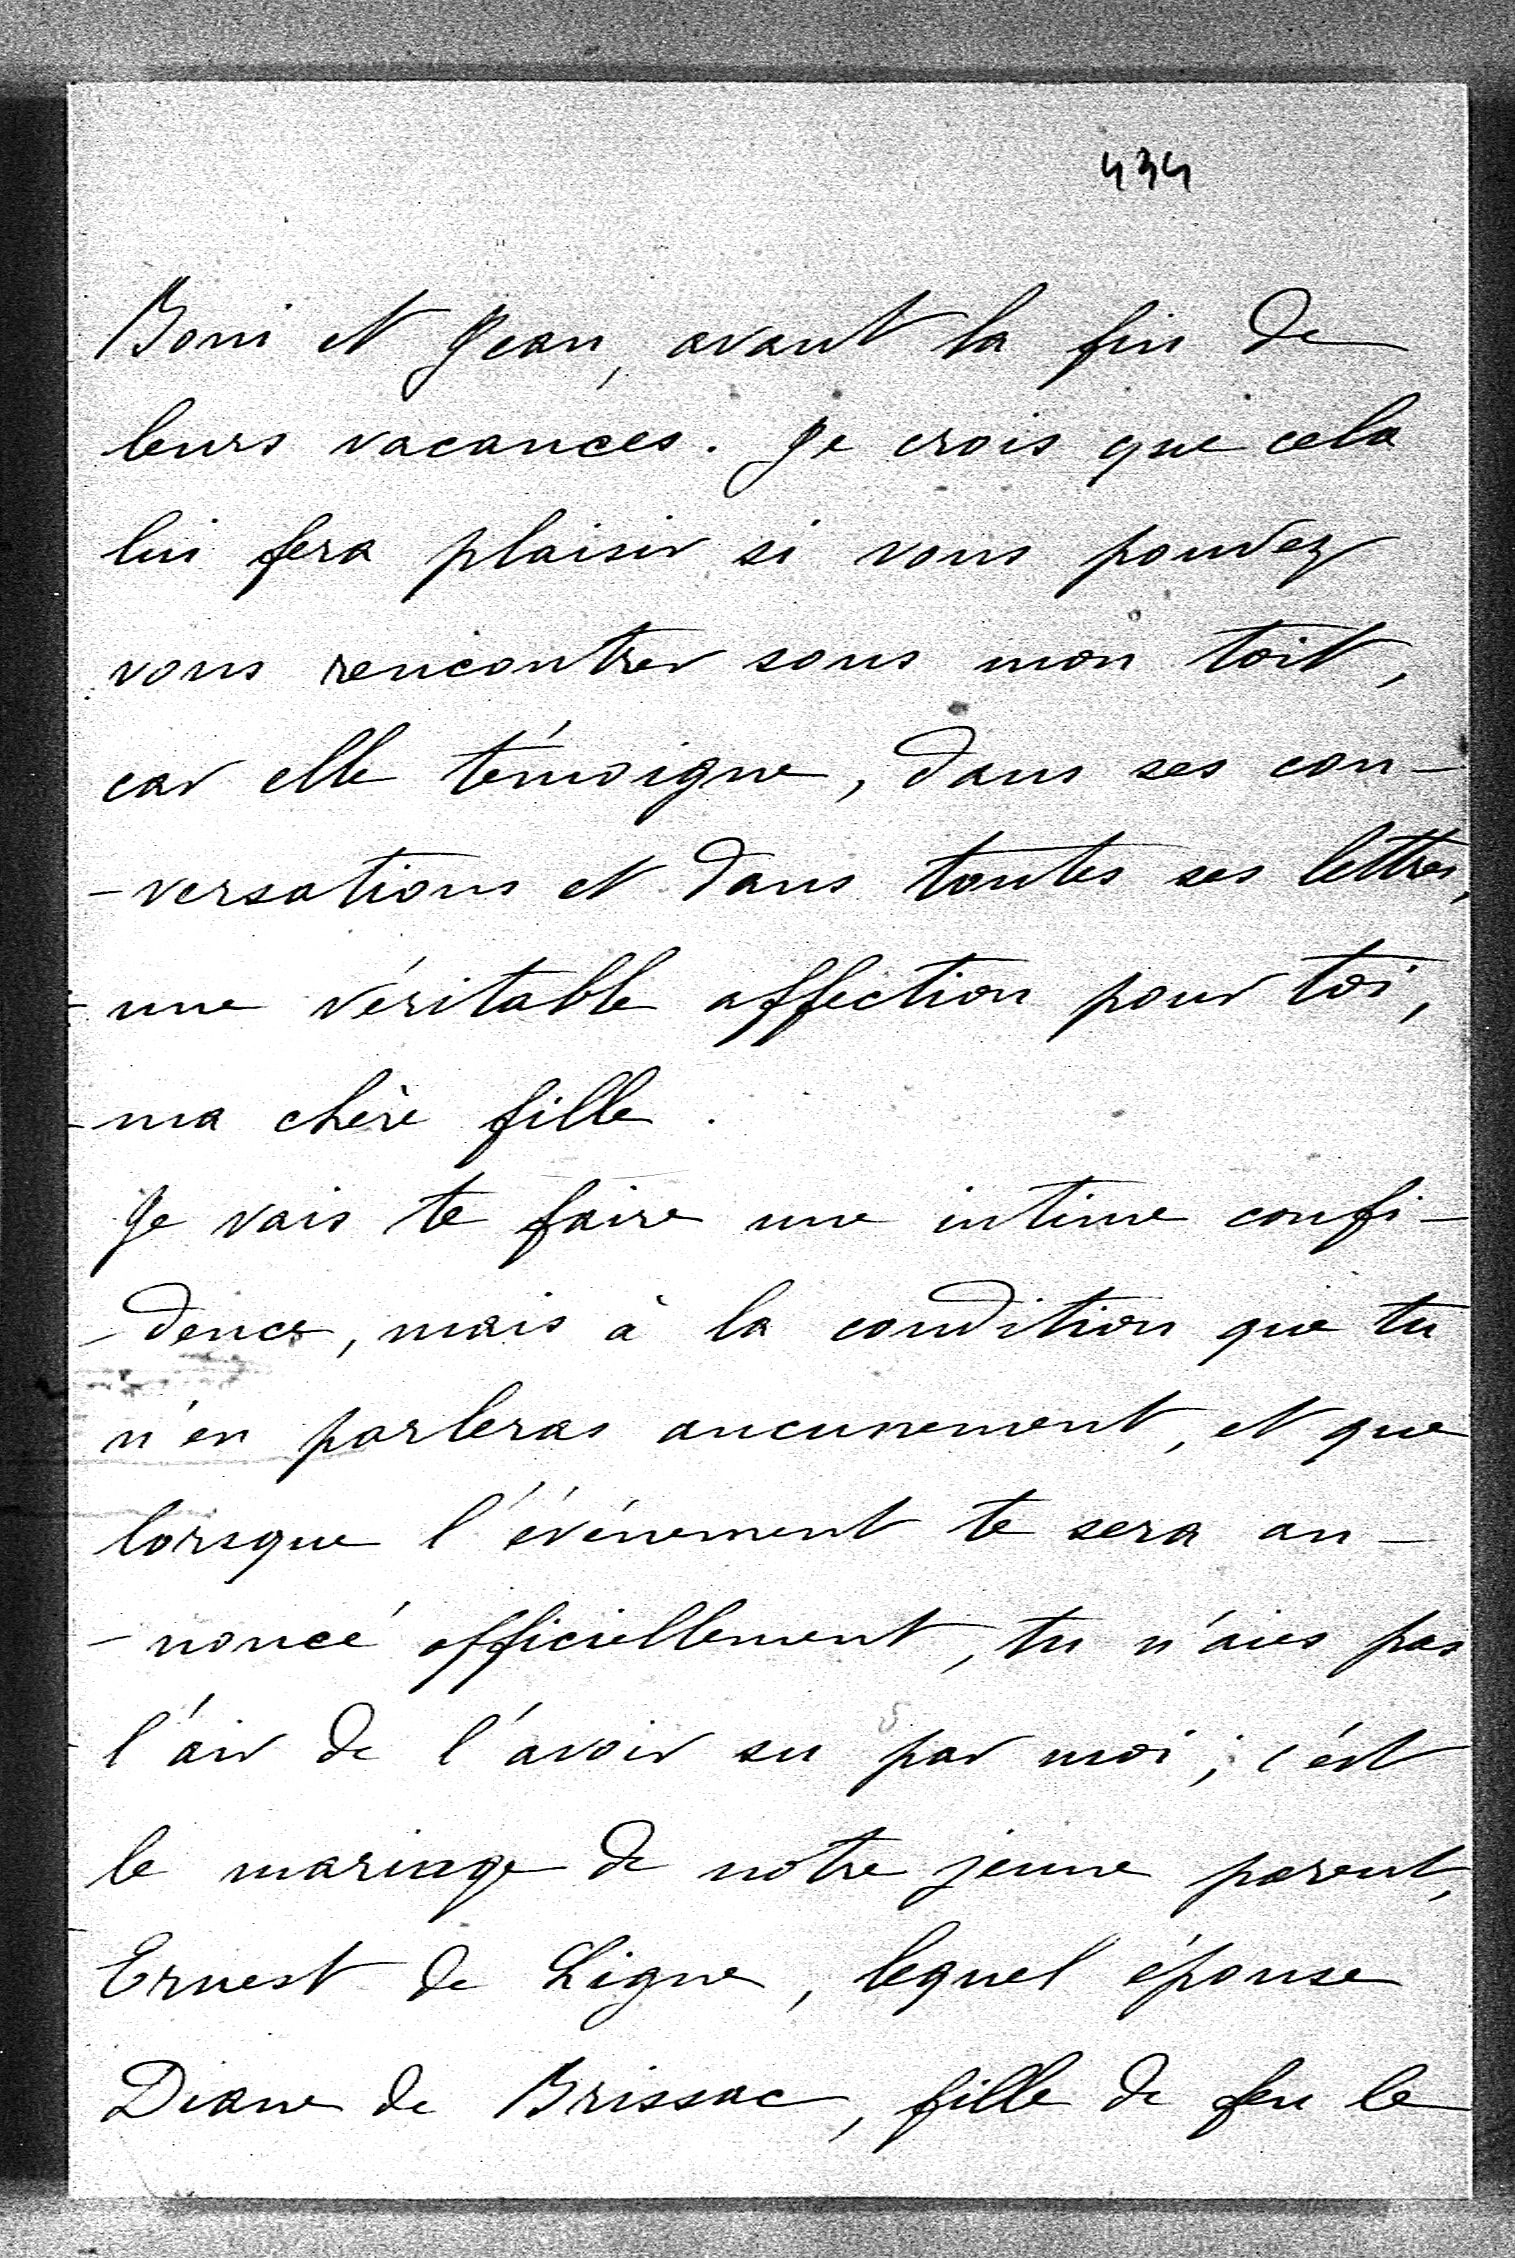 434
Boni et Jean, avant la fin de
leurs vacances. Je crois que cela
lui fera plaisir si vous pouvez
vous rencontrer sous mon toit,
car elle témoigne, dans ses con-
-versations et dans toutes ses lettres,
une véritable affection pour toi,
ma chère fille.
Je vais te faire une intime confi-
-dence, mais à la condition que tu
n'en parleras aucunement, et que
lorsque l'événement te sera an-
-noncé officiellement, tu n'aies pas
l'air de l'avoir su par moi ; c'est
le mariage de notre jeune parent,
Ernest de Ligne, lequel épouse
Diane de Brissac, fille de feu le